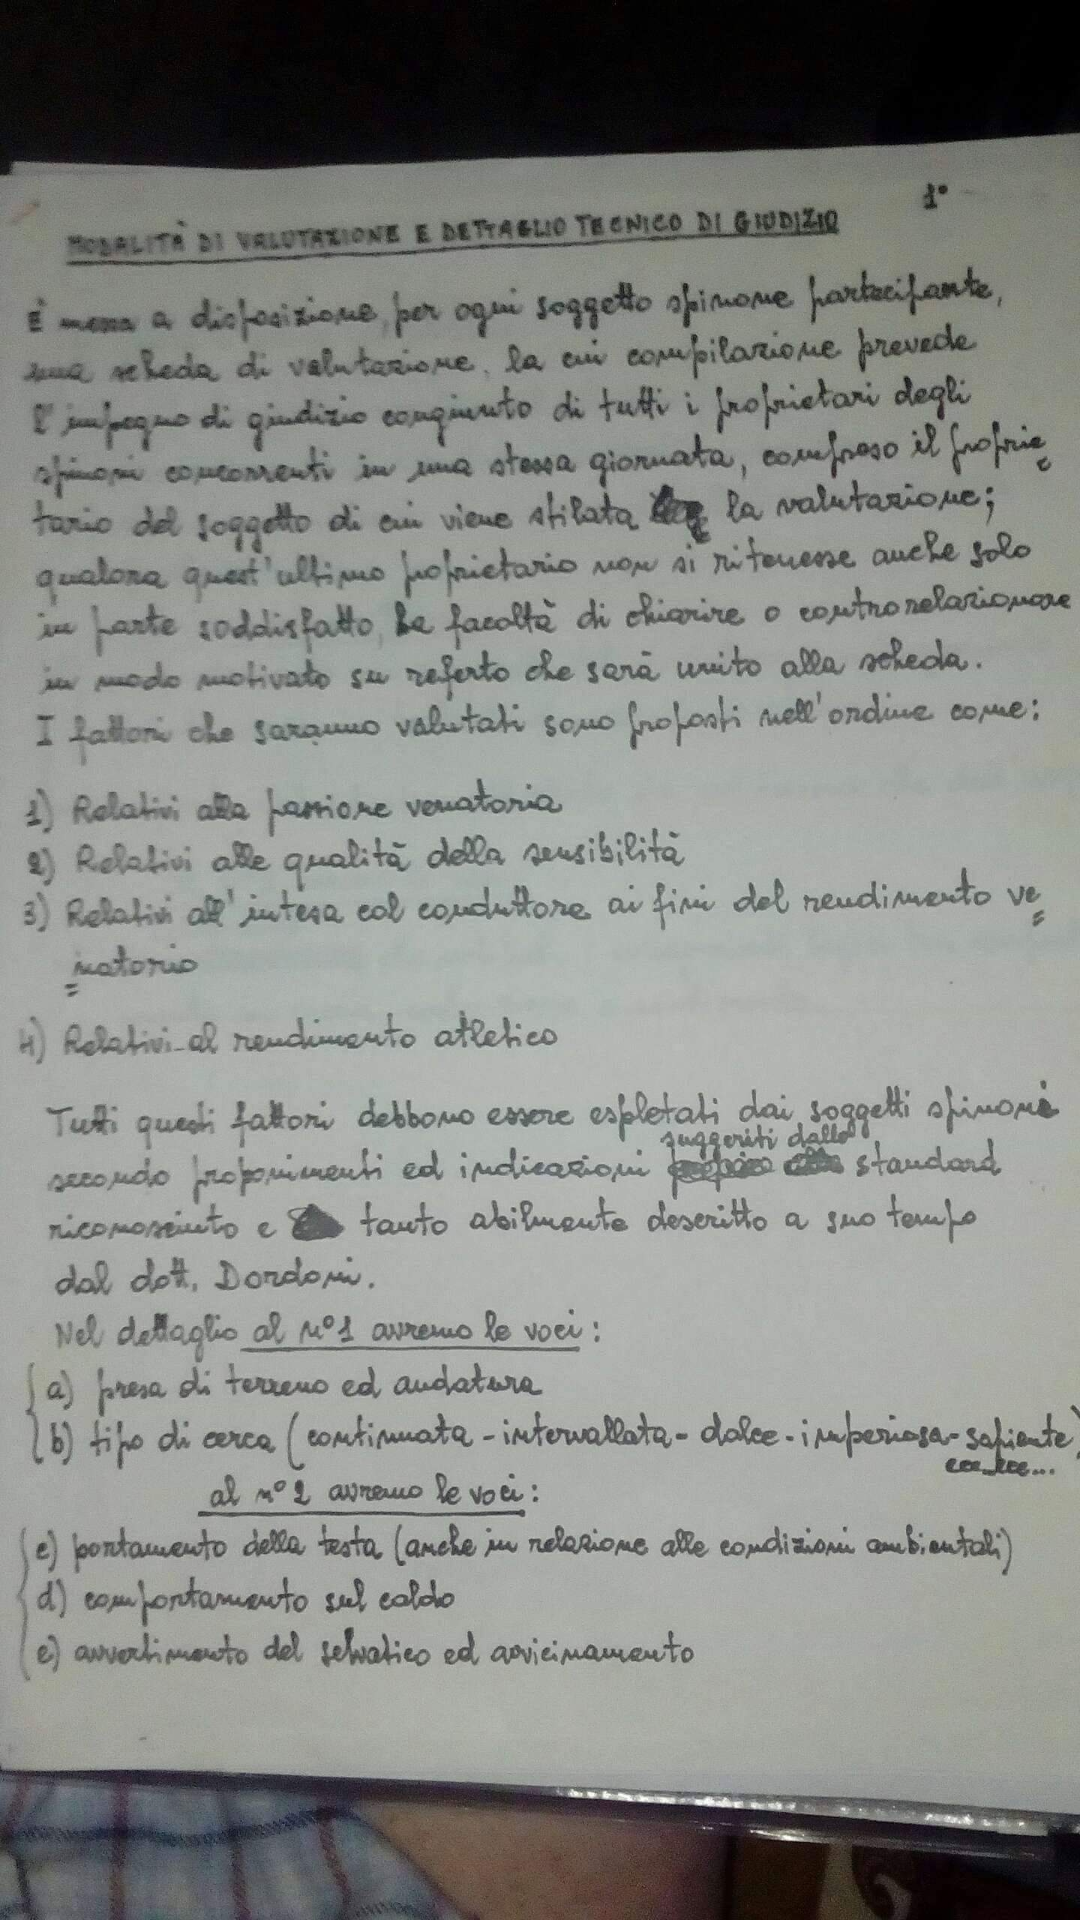 1°
MODALITÀ DI VALUTAZIONE E DETTAGLIO TECNICO DI GIUDIZIO
È messa a disposizione, per ogni soggetto spinone partecipante,
una scheda di valutazione, la cui compilazione prevede
l'impegno di giudizio congiunto di tutti i proprietari degli
spinoni concorrenti in una stessa giornata, compreso il proprie=
tario del soggetto di cui viene stilata la valutazione;
qualora quest'ultimo proprietario non si ritenesse anche solo
in parte soddisfatto, ha facoltà di chiarire o controrelazionare
in modo motivato su referto che sarà unito alla scheda.
I fattori che saranno valutati sono proposti nell'ordine come:
1) Relativi alla passione venatoria
2) Relativi alle qualità della sensibilità
3) Relativi all'intesa col conduttore ai fini del rendimento ve=
=natorio
4) Relativi al rendimento atletico
Tutti questi fattori debbono essere espletati dai soggetti spinoni
suggeriti dallo
secondo proponimenti ed indicazioni standard
riconosciuto e tanto abilmente descritto a suo tempo
dal dott. Dordoni.
Nel dettaglio al n°1 avremo le voci:
a) presa di terreno ed andatura
b) tipo di cerca (continuata - intervallata - dolce - imperiosa - sapiente)
ecc..ecc...
al n°2 avremo le voci:
c) portamento della testa (anche in relazione alle condizioni ambientali)
d) comportamento sul caldo
e) avvertimento del selvatico ed avvicinamento